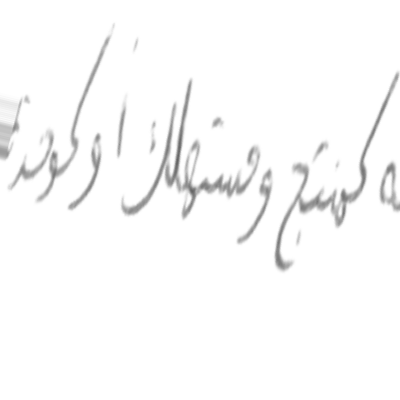 كمنتج ومستهلك أو كوحدة